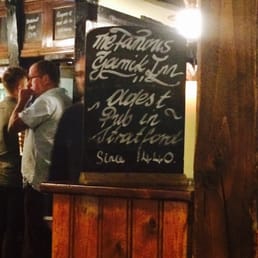 The Famous
Garrick Inn
oldest
Pub in
Stratford
Since 1440.